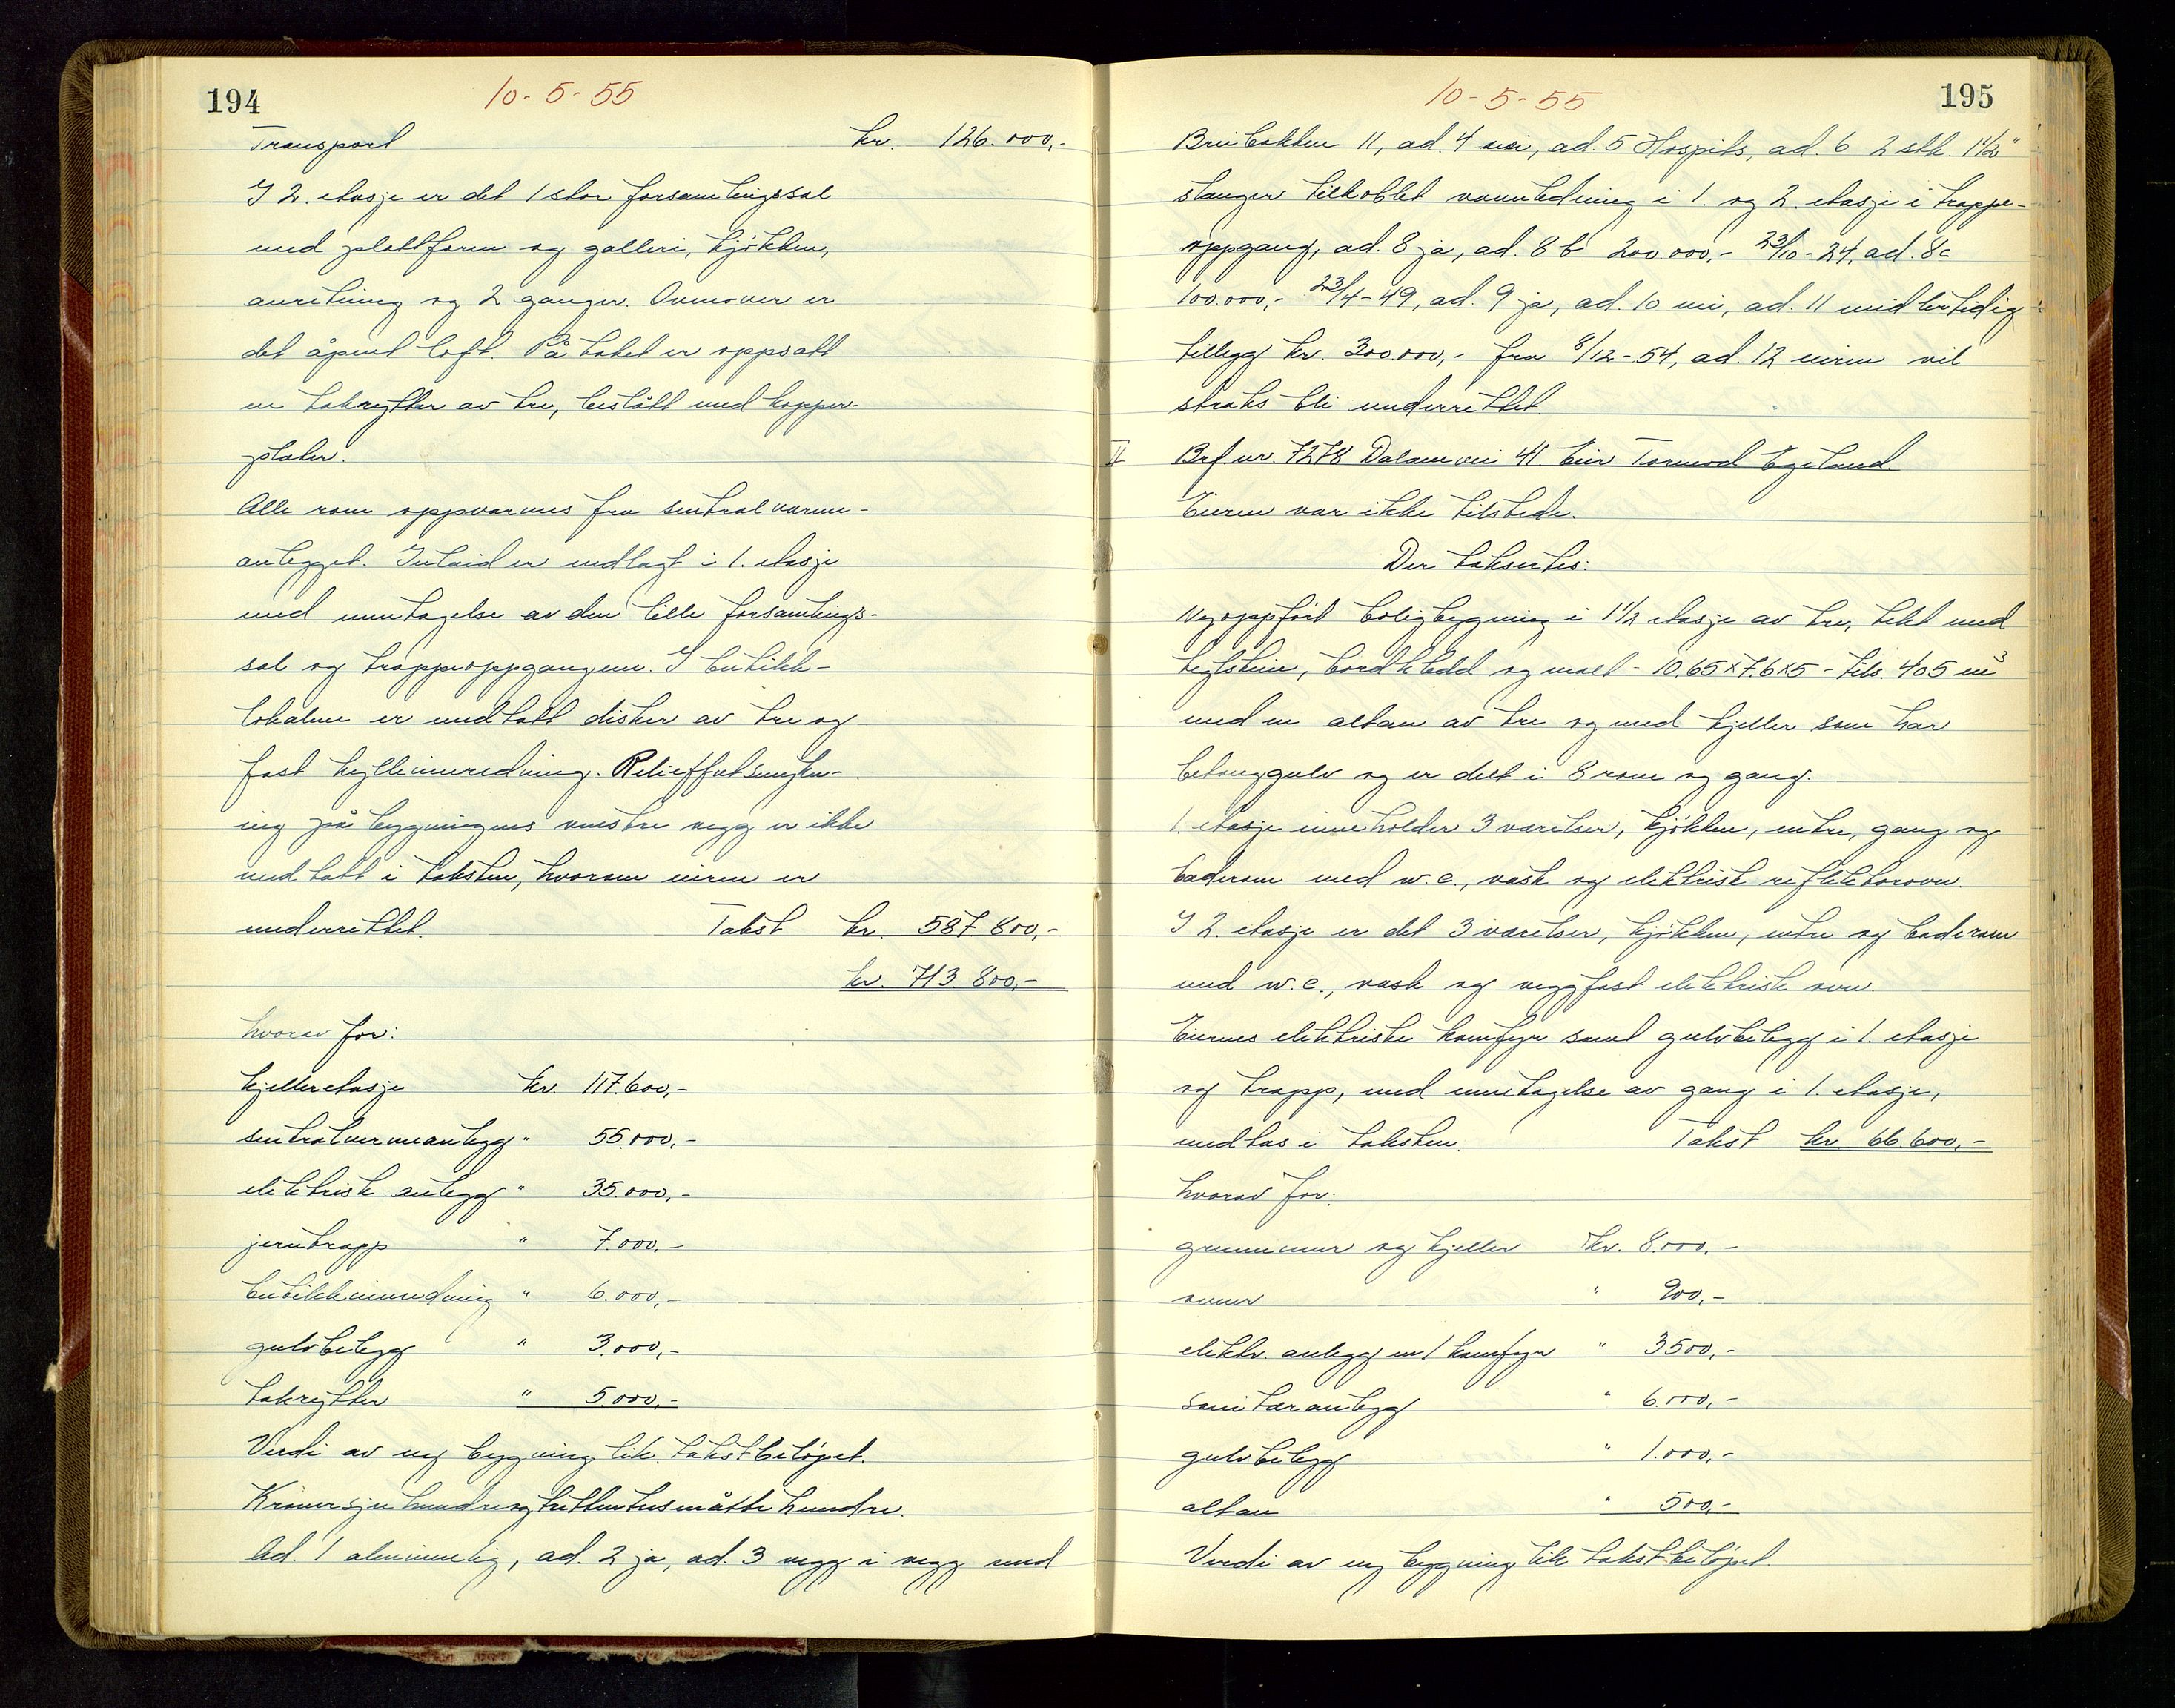 194
10-5-55
Transport kr. 126.000,-
I 2. etasje er det 1 stor forsamlingssal
med plattform og galleri, kjökken,
anretning og 2 ganger. Ovenover er
det åpent loft. På taket er oppsatt
en takrytter av tre, beslått med kopper-
plater.
Alle rom oppvarmes fra sentralvarme-
anlegget. Inlaid er medtagt i 1. etasje
med unntagelse av den lille forsamlings-
sal og trappeoppgangene. I butikk-
lokalene er medtatt disker av tre og
fast hylleinnredning. Relieffutsmykn-
ing på bygningens venstre vegg er ikke
medtatt i taksten, hvorom eieren er
underrettet. Takst kr. 587 800,-
kr. 713.800,-
hvorav for:
kjelleretasje kr. 117.600,-
sentralvarmeanlegg " 55.000,-
elektrisk anlegg " 35.000,-
jerntrapp " 7.000,-
butikkinnredning " 6.000,-
gulvbelegg " 3.000,-
takrytter " 5.000,-
Verdi av ny bygning lik takstbelöpet.
Kroner sju hundre og trettentusenåtte hundre.
Ad. 1 alminnelig, ad. 2 ja, ad. 3 vegg i vegg med
10-5-55
195
Breibakken 11, ad. 4 nei, ad. 5 Hospits, ad. 6 2 stk. 1 1/2"
slanger tilkoblet vannledning i 1. og 2. etasje i trappe-
oppgang, ad. 8 ja, ad. 8 b 200.000,- 23/10-24, ad. 8c
100.000,- 23/4-49, ad. 9 ja, ad. 10 nei, ad. 11 midlertidig
tillegg kr. 300.000,- fra 8/12-54, ad. 12 eieren vil
straks bli underrettet.
II Brf nr. 7278 Dalane vei 41 Eier Tormod Egeland.
Eieren var ikke tilstede.
Der taksertes:
Nyoppfört boligbygning i 1 1/2 etasje av tre, tekt med
teglstein, bordkledd og malt - 10.65x7.6x5 - tils. 405 m3
med en altan av tre og med kjeller som har
betonggulv og er delt i 8 rom og gang.
1. etasje inneholder 3 værelser, kjökken, entre, gang og
baderom med w.c., vask og elektrisk reflektorovn.
I 2. etasje er det 3 værelser, kjökken, entre og baderom
med w.c., vask og veggfast elektrisk ovn.
Eierens elektriske komfyr samt gulvbelegg i 1. etasje
og trapp, med unntagelse av gang i 1. etasje,
medtas i taksten. Takst kr. 66.600,-
hvorav for:
grunnmur og kjeller kr. 8.000,-
ovner " 900,-
elektr. anlegg m/1 komfyr " 3500,-
sanitæranlegg " 6.000,-
gulvbelegg " 1.000,-
altan " 500,-
Verdi av ny bygning lik takstbelöpet.